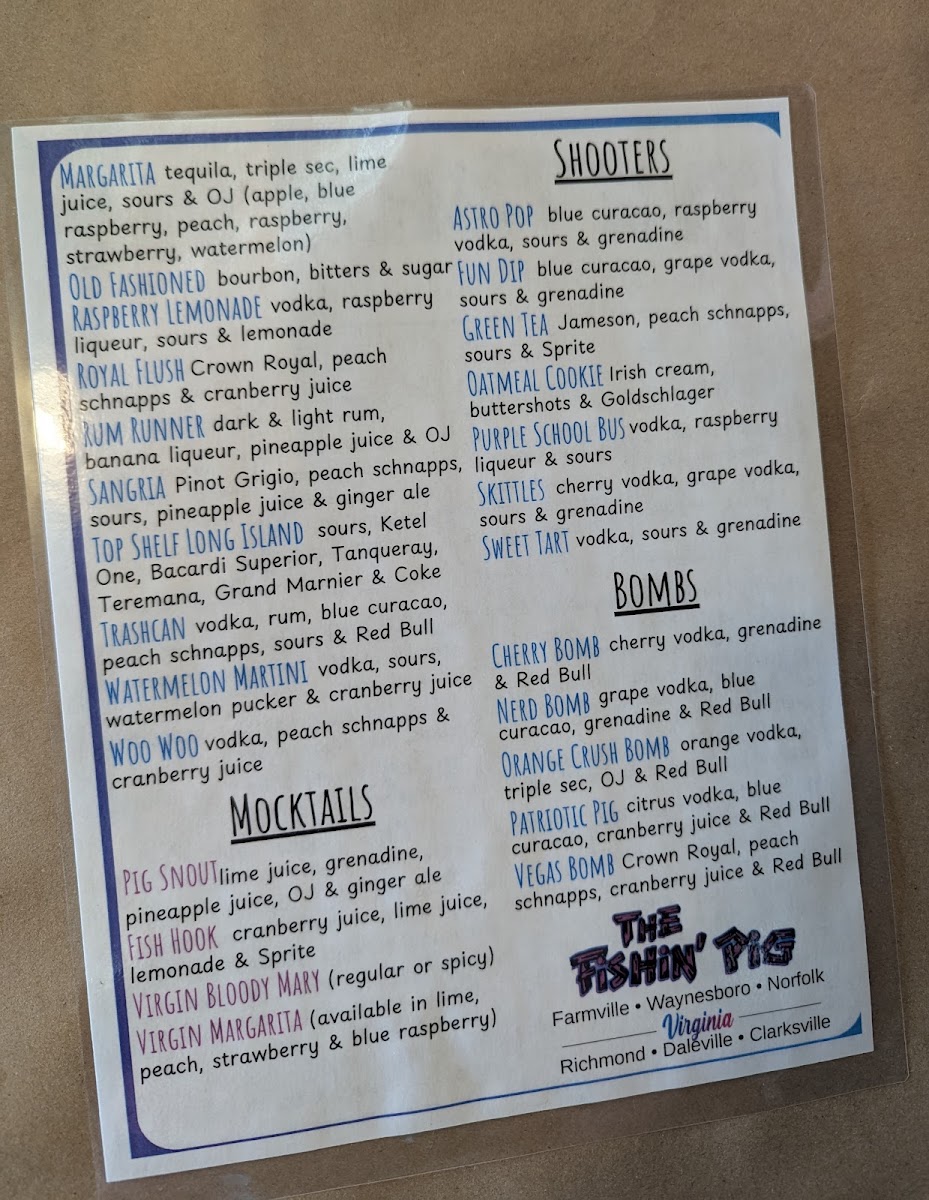 MARGARITA tequila, triple sec, lime
juice, sours & OJ (apple, blue
raspberry, peach, raspberry,
strawberry, watermelon)
OLD FASHIONED bourbon, bitters & sugar
RASPBERRY LEMONADE vodka, raspberry
liqueur, sours & lemonade
ROYAL FLUSH Crown Royal, peach
schnapps & cranberry juice
RUM RUNNER dark & light rum,
banana liqueur, pineapple juice & OJ
SANGRIA Pinot Grigio, peach schnapps,
sours, pineapple juice & ginger ale
TOP SHELF LONG ISLAND sours, Ketel
One, Bacardi Superior, Tanqueray,
Teremana, Grand Marnier & Coke
TRASHCAN vodka, rum, blue curacao,
peach schnapps, sours & Red Bull
WATERMELON MARTINI vodka, sours,
watermelon pucker & cranberry juice
WOO WOO vodka, peach schnapps &
cranberry juice
MOCKTAILS
PIG SNOUT lime juice, grenadine,
pineapple juice, OJ & ginger ale
FISH HOOK cranberry juice, lime juice,
lemonade & Sprite
VIRGIN BLOODY MARY (regular or spicy)
VIRGIN MARGARITA (available in lime,
peach, strawberry & blue raspberry)
SHOOTERS
ASTRO POP blue curacao, raspberry
vodka, sours & grenadine
FUN DIP blue curacao, grape vodka,
sours & grenadine
GREEN TEA Jameson, peach schnapps,
sours & Sprite
OATMEAL COOKIE Irish cream,
buttershots & Goldschlager
PURPLE SCHOOL BUS vodka, raspberry
liqueur & sours
SKITTLES cherry vodka, grape vodka,
sours & grenadine
SWEET TART vodka, sours & grenadine
BOMBS
CHERRY BOMB cherry vodka, grenadine
& Red Bull
NERD BOMB grape vodka, blue
curacao, grenadine & Red Bull
ORANGE CRUSH BOMB orange vodka,
triple sec, OJ & Red Bull
PATRIOTIC PIG citrus vodka, blue
curacao, cranberry juice & Red Bull
VEGAS BOMB Crown Royal, peach
schnapps, cranberry juice & Red Bull
THE
FISHIN' PIG
Farmville • Waynesboro • Norfolk
Virginia
Richmond • Daleville • Clarksville